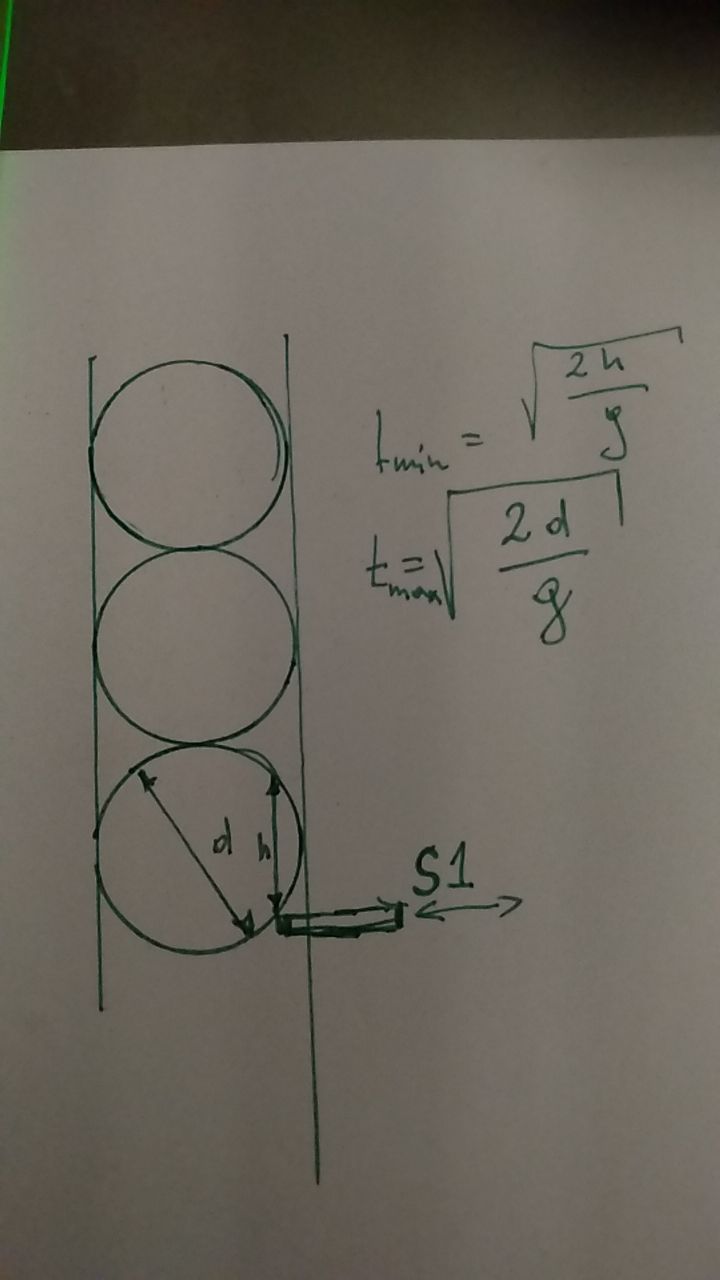 t_min = √(2h/g)
t_max = √(2d/g)
d h
S1